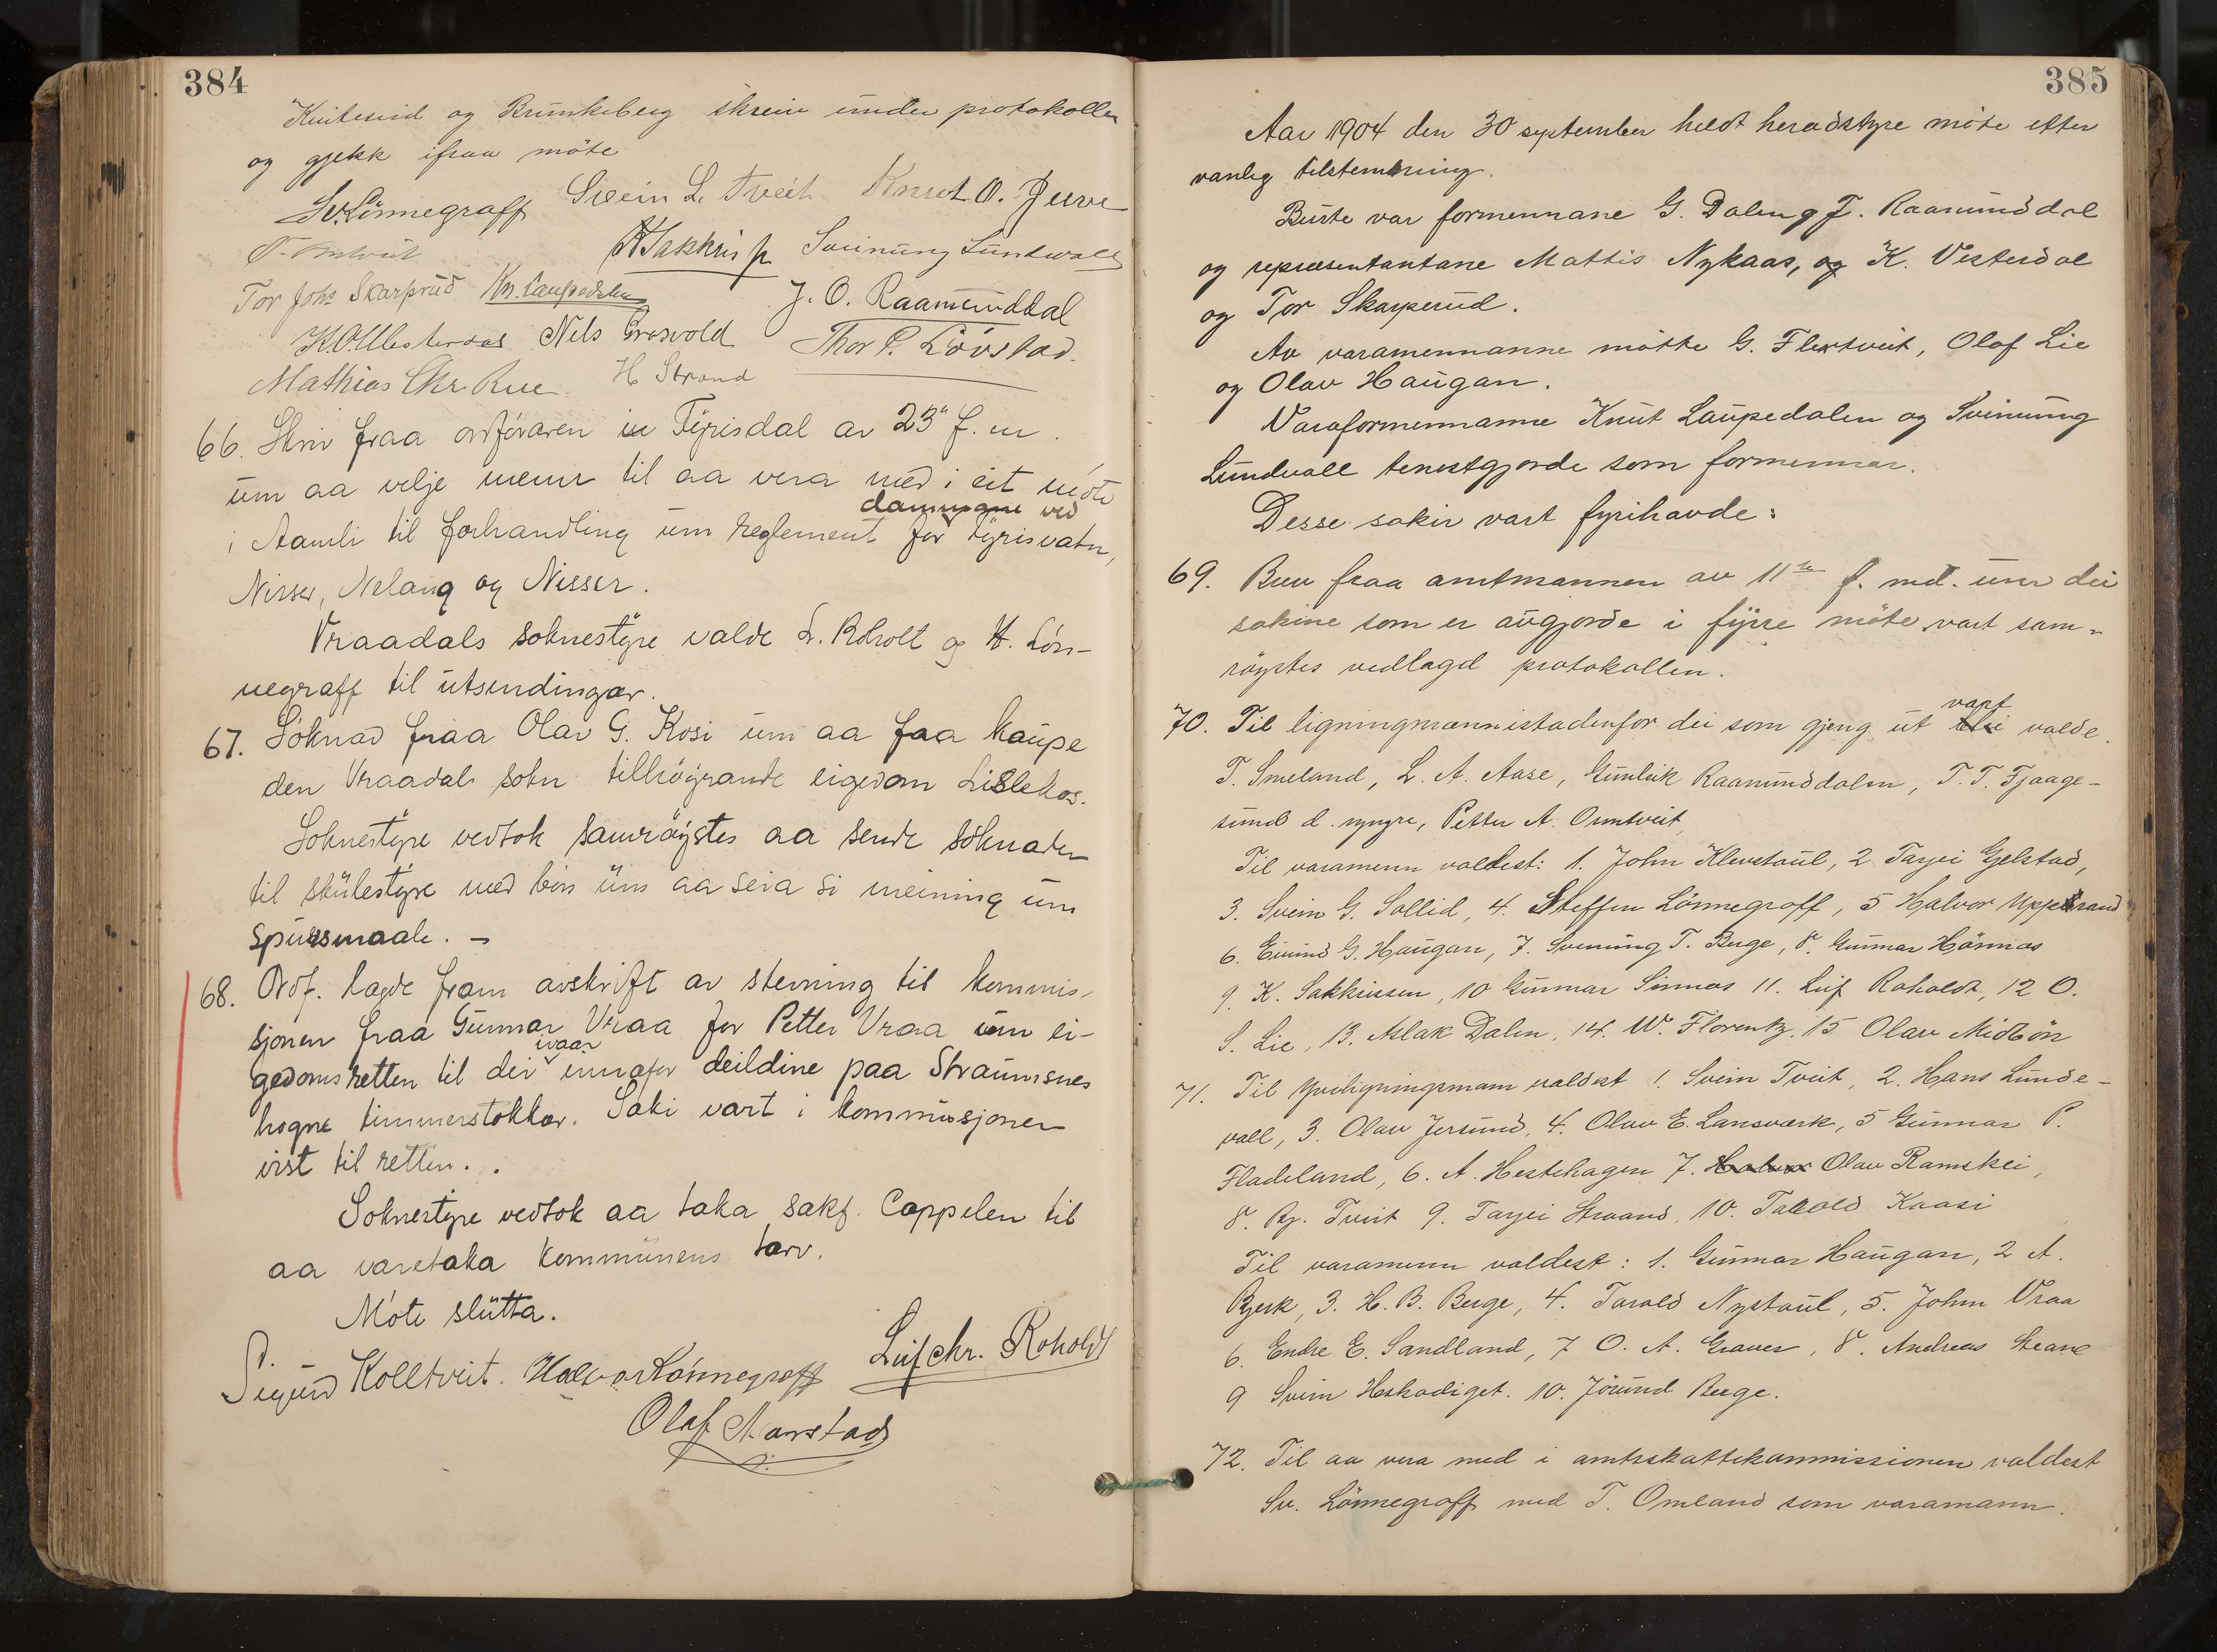 384
Kvitesund og Brunkeberg skreiv under protokollen
og gjekk ifraa möte
Sv. Lönnegraff Svein L. Tveit Knut O. Juve
T. Omtveit K Sakkris Svinung Lundevall
Tor Johs Skarprud Kn. Laupedalen J. O. Raamunddal
K.O. Vesterdal Nels Grosvold Thor P. Lövstad.
Mathias Chr. Rue H Strand
66. Skriv fraa ordföraren i Tyrisdal av 23de f. m.
um aa velje menn til aa vera med i eit möte
damningane ved
i Aamli til forhandling um reglement for Tyrisvatn,
Nisser, Nelaug og Nisser.
Vraadals soknestyre valde L. Roholt og H. Lön-
negraff til utsendingar.
67. Söknad fraa Olav G. Kosi um aa faa kaupe
den Vraadals sokn tillhöyrande eigedom Lislekos.
Soknestyre vedtok samröystes aa sende söknaden
til skulestyre med bön um aa seia si meining um
spursmaale. —
68. Ordf. lagde fram avskrift av stevning til kommis-
sjonen fraa Gunnar Vraa for Petter Vraa um ei-
vaar
gedomsretten til dei innafor deildine paa Straumsnes
hogne timmerstokkar. Saki vart i kommissjonen
vist til retten.
Soknestyre vedtok aa taka sakf. Cappelen til
aa varetaka kommunens tarv.
Möte slutta.
Sigurd Kolltveit. Halvor Lönnegraff Leif Chr. Roholdt
Olaf Naustad
385
Aar 1904 den 30 september heldt heradstyre möte etter
vanleg tilstemning.
Burte var formennane G. Dalen og J. Raamunddal
og representantane Mattis Nykaas, og K. Vesterdal
og Tor Skarperud.
Av varamennanne mötte G. Flekstveit, Olaf Lie
og Olav Haugan.
Varaformennanne Knut Laupedalen og Svinung
Lundevall tenestgjorde som formennar.
Desse sakir vart fyrihavde:
69. Brev fraa amtmannen av 11te f. md. um dei
sakine som er avgjorde i fyrre möte vart sam-
röystes vedlagd protokollen.
vart
70. Til ligningmenn istadenfor dei som gjeng ut blei valde
T. Smeland, L. A. Aase, Gunleik Raamunddalen, T. T. Fjaage-
sund d. yngre, Petter A. Omtveit
Til varamenn valdest: 1. John Klevstaul, 2 Tarjei Gjelstad,
3. Svein G. Sollid, 4. Steffen Lönnegraff, 5 Halvor Uppstrand
6. Eivind G. Haugan, 7. Svenung T. Berge, 8. Gunnar Hösnnas
9. K. Sakkrissen, 10 Gunnar Sinnes 11. Leif Roholdt, 12 O.
S. Lie, 13. Aslak Dalen, 14. W. Florentz. 15 Olav Midbön
71. Til yviligningsmenn valdest 1. Svein Tveit, 2. Hans Lunde-
vall, 3. Olav Jersund, 4. Olav E. Lansværk, 5 Gunnar P.
Fladeland, 6. A. Hestehagen 7. Halvor Olav Ramskei,
8. Bj. Tveit 9. Tarjei Straand, 10. Talold Kaasi
Til varamenn valdest: 1. Gunnar Haugan, 2 A.
Bjerk, 3. H. B. Berge, 4. Tarald Nystaul, 5. John Vraa
6. Endre E. Sandland, 7 O. A. Graver, 8. Andreas Strand
9 Svein Heskodiget. 10. Jörund Berge.
72. Til aa vera med i amtsskattekommissionen valdest
Sv. Lönnegraff med T. Omland som varamann.